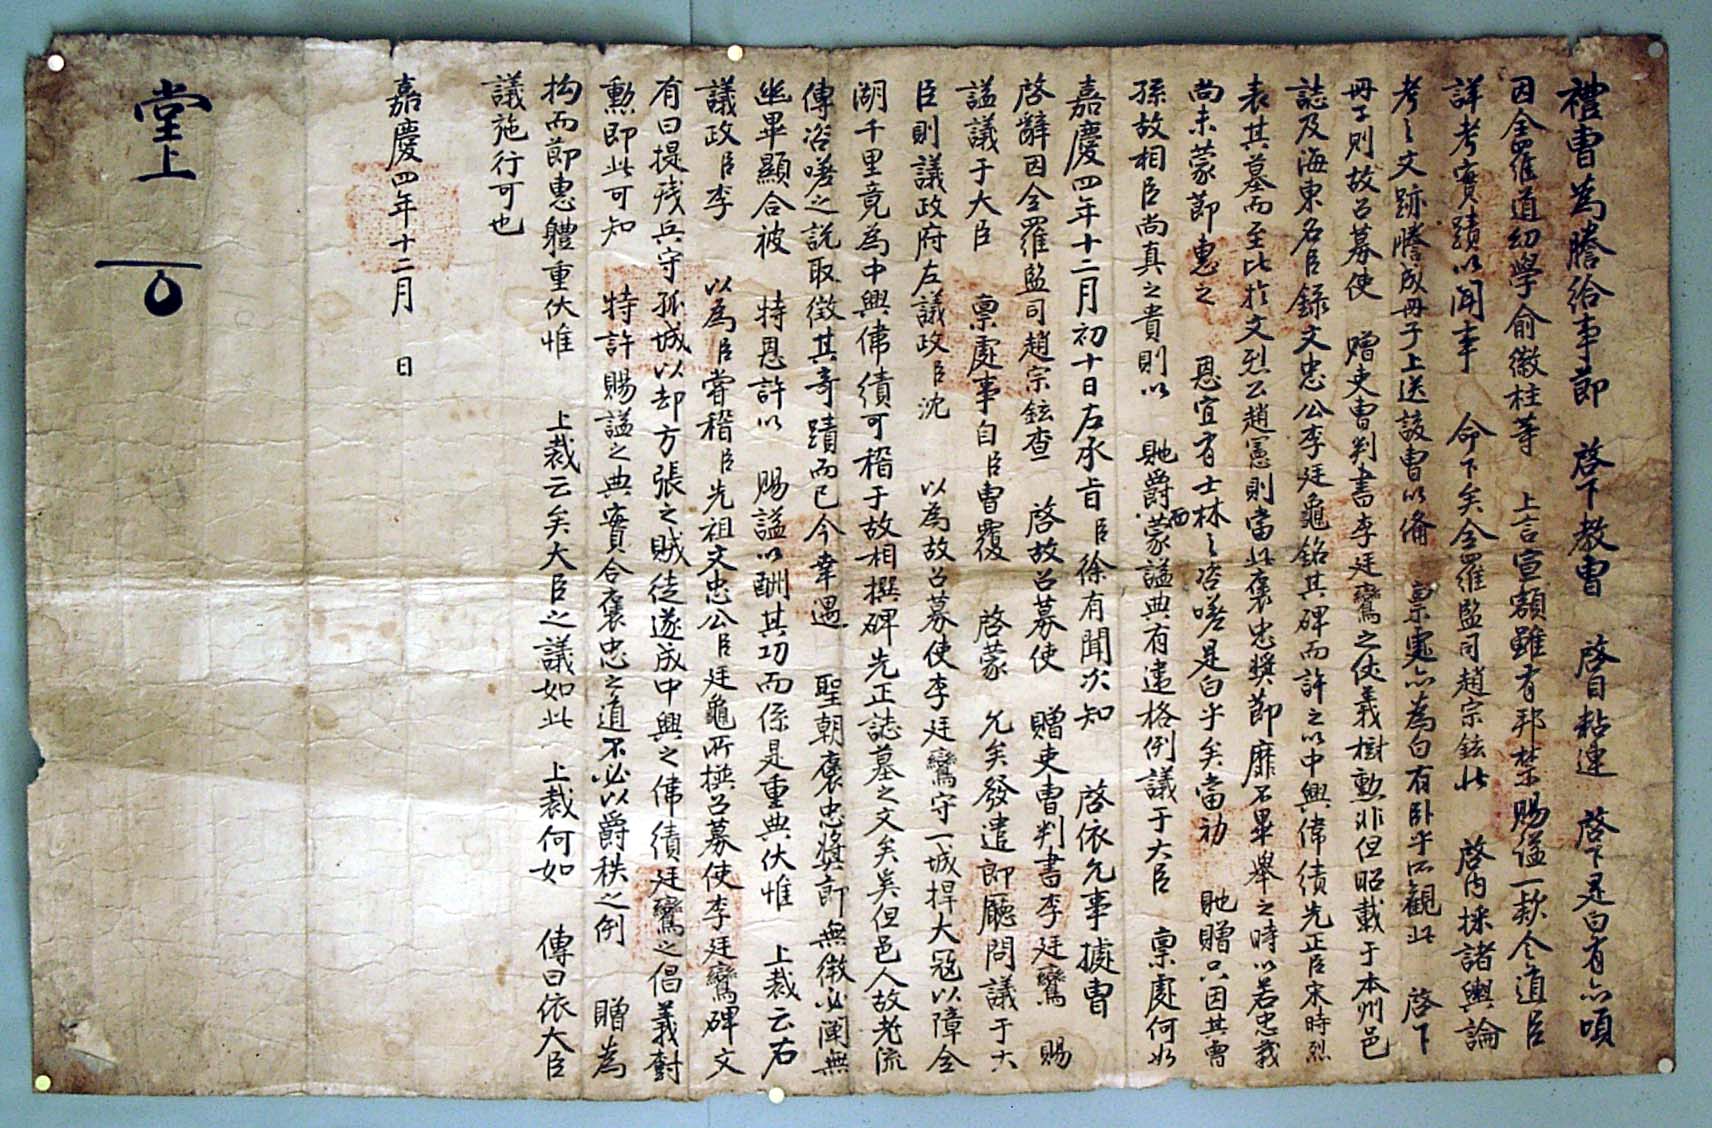 禮曹爲謄給事節 啓下敎曹 啓目粘連 啓下是白有亦向
因全羅道幼學俞徽柱等 上言宣額雖有邦禁賜謚一款令道臣
詳考實蹟以聞事 命下矣全羅監司趙宗鉉此 啓內採諸輿論
考之文跡謄成冊子上送該曹以備 稟處亦爲白有臥乎所觀此 啓下
冊子則故召募使 贈吏曹判書李廷鸞之仗義樹勳非但昭載于本州邑
誌及海東名臣錄文忠公李廷龜銘其碑而許之以中興偉績先正臣宋時烈
表其墓而至比於文烈公趙憲則當此褒忠奬節靡不畢擧之時以若忠義
尙未蒙節惠之 恩宜有士林之咨嗟是白乎矣當初 貤贈只因其曾
孫故相臣尙眞之貴則以 貤爵而蒙謚典有違格例議于大臣 稟處何如
嘉慶四年十二月初十日右承旨臣徐有聞次知 啓依允事據曹
啓辭因全羅監司趙宗鉉查 啓故召募使 贈吏曹判書李廷鸞 賜
謚議于大臣 稟處事自臣曹覆 啓蒙 允矣發遣郞廳問議于大
臣則議政府左議政臣沈 以爲故召募使李廷鸞守一城捍大寇以障全
湖千里竟爲中興偉績可稽于故相撰碑先正誌墓之文矣矣但邑人故老流
傳咨嗟之說取徵其奇蹟而已今幸遇 聖朝褒忠奬節無微必闡無
幽畢顯合被 特恩許以 賜謚以酬其功而係是重典伏惟 上裁云右
議政臣李 以爲臣嘗稽臣先祖文忠公臣廷龜所撰召募使李廷鸞碑文
有曰提殘兵守孤城以却方張之賊徒遂成中興之偉績廷鸞之倡義對
勳卽此可知 特許賜謚之典實合褒忠之道不必以爵秩之例 贈爲
拘而節惠體重伏惟 上裁云矣大臣之議如此 上裁何如 傳曰依大臣
議施行可也
嘉慶四年十二月 日
堂上